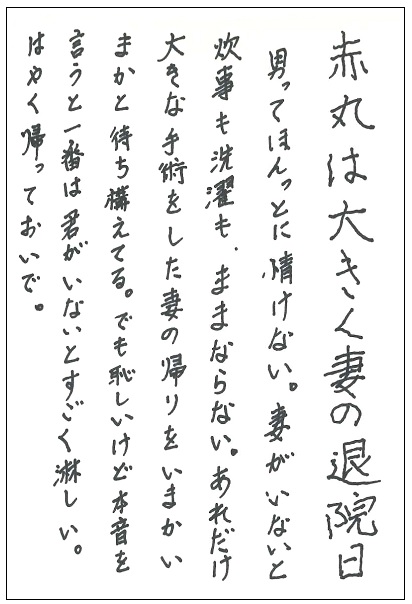 赤丸は大きく妻の退院日
男ってほんっとに情けない。妻がいないと
炊事も洗濯も、ままならない。あれだけ
大きな手術をした妻の帰りをいまかい
まかと待ち構えてる。でも恥しいけど本音を
言うと一番は君がいないとすごく淋しい。
はやく帰っておいで。